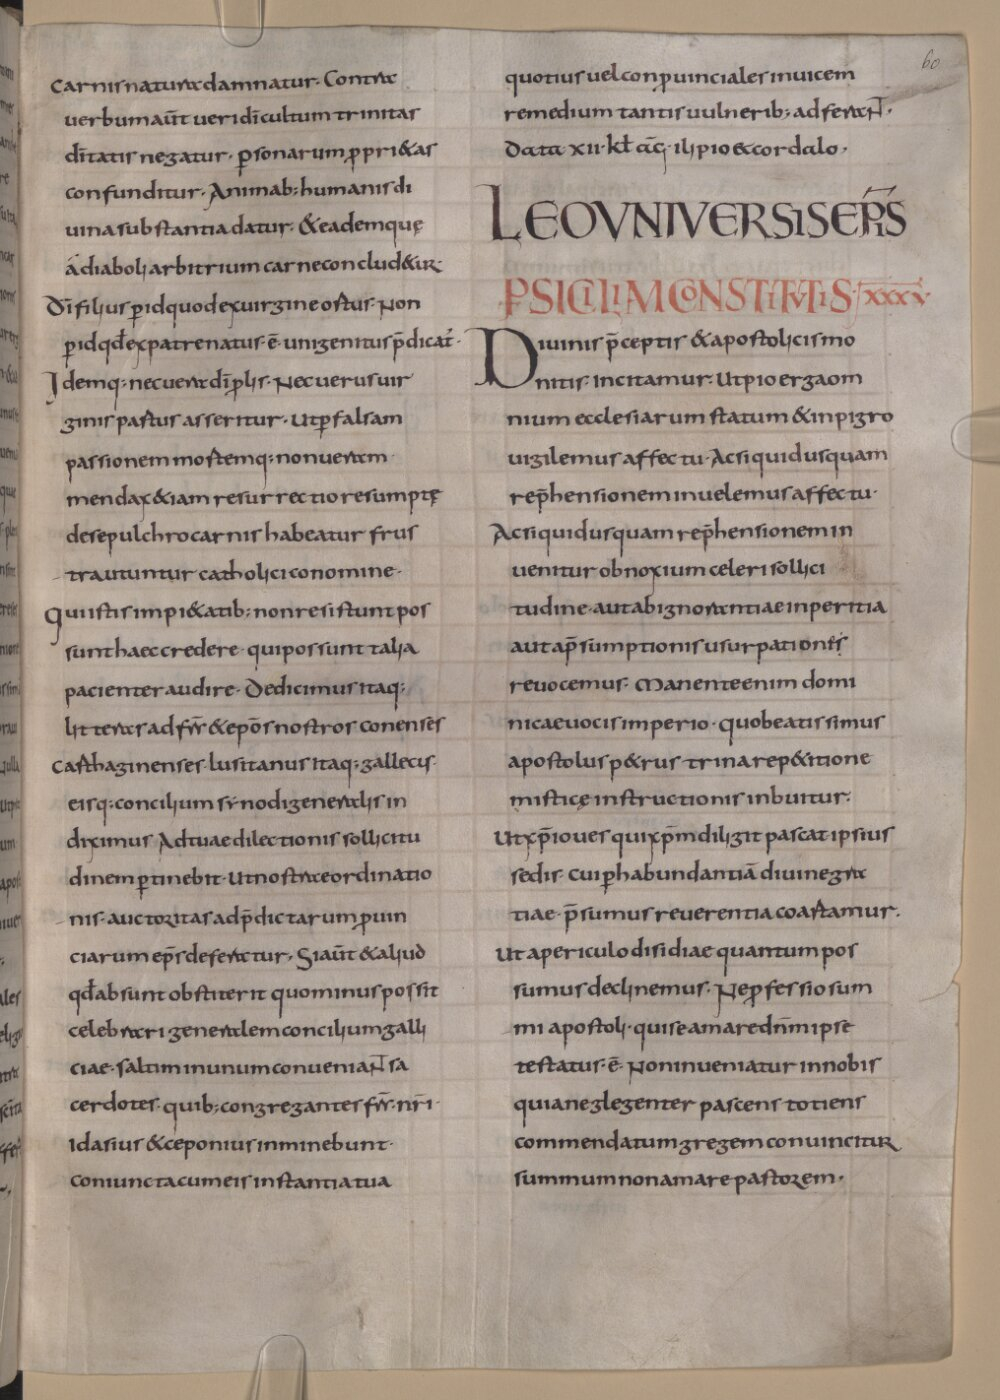 60
carnis naturae damnatur. Contra
uerbum aut̄ ueri dī cultum trinitas
dītatis negatur. p̱sonarum p̱pri&as
confunditur. Animab; humanis di
uina substantia datur. & eademquę
a diaboli arbitrium carne conclud&ur.
Dī filius p̱ id quod ex uirgine ortus. Non
p̱ id qđ ex patre natus. ē. unigenitus p̄dicat̄.
Idemq; nec uera dī p̱lis. Nec uerus uir
ginis partus asseritur. Ut p̱ falsam
passionem mortemq; non ueram
mendax &iam resurrectio resumptę
de sepulchro carnis habeatur frus
tra utuntur catholici co nomine.
Qui istis impi&atib; non resistunt pos
sunt haec credere. qui possunt talia
pacienter audire. Dedicimus itaq;
litteras ad frr̄ & epōs nostros conenses
carthaginenses lusitanus itaq; gallecis
eisq; concilium synodi generalis in
diximus Ad tuae dilectionis sollicitu
dinem p̱tinebit. Ut nostrae ordinatio
nis. auctoritas ad p̄dictarum p̱uin
ciarum ep̄s deferatur. Si aut̄ & aliud
qđ absunt obstiterit quominus possit
celebrari generalem concilium galli
ciae. saltim in unum conueniaNT sa
cerdotes. quib; congregantes frr̄. nr̄i.
idasius & ceponius inminebunt.
coniuncta cum eis instantia tua
quotius uel conp̱uinciales inuicem
remedium tantis uulnerib; adferaNT.
Data xii. kł. aḡ. ilipio & cordalo.
LEO UNIVERSIS EP̄IS
P SICILIAM CONSTITUTIS. XXXV
Diuinis p̄ceptis & apostolicis mo
nitis. Incitamur. Ut pio erga om
nium ecclesiarum statum & inpigro
uigilemus affectu. Ac si quid usquam
rep̄hensionem inuelemus affectu.
Ac si quid usquam rep̄hensionem in
uenitur obnoxium celeri sollici
tudine. aut ab ignorantiae inperitia
aut a p̄sumptionis usurpationis
reuocemus. Manente enim domi
nicae uocis imperio. quo beatissimus
apostolus p&rus trina rep&itione
misticę instructionis inbuitur.
Ut xp̄i oues qui xp̄m diligit pascat ipsius
sedis. Cui p̱ habundantiā diuine gra
tiae. p̄sumus reuerentia coartamur.
Ut a periculo disidiae quantum pos
sumus declinemus. Ne p̱fessio sum
mi apostoli. qui se amare dn̄m ipse
testatus. ē. Non inueniatur in nobis
quia neglegenter pascens totiens
commendatum gregem conuincitur
summum non amare pastorem.